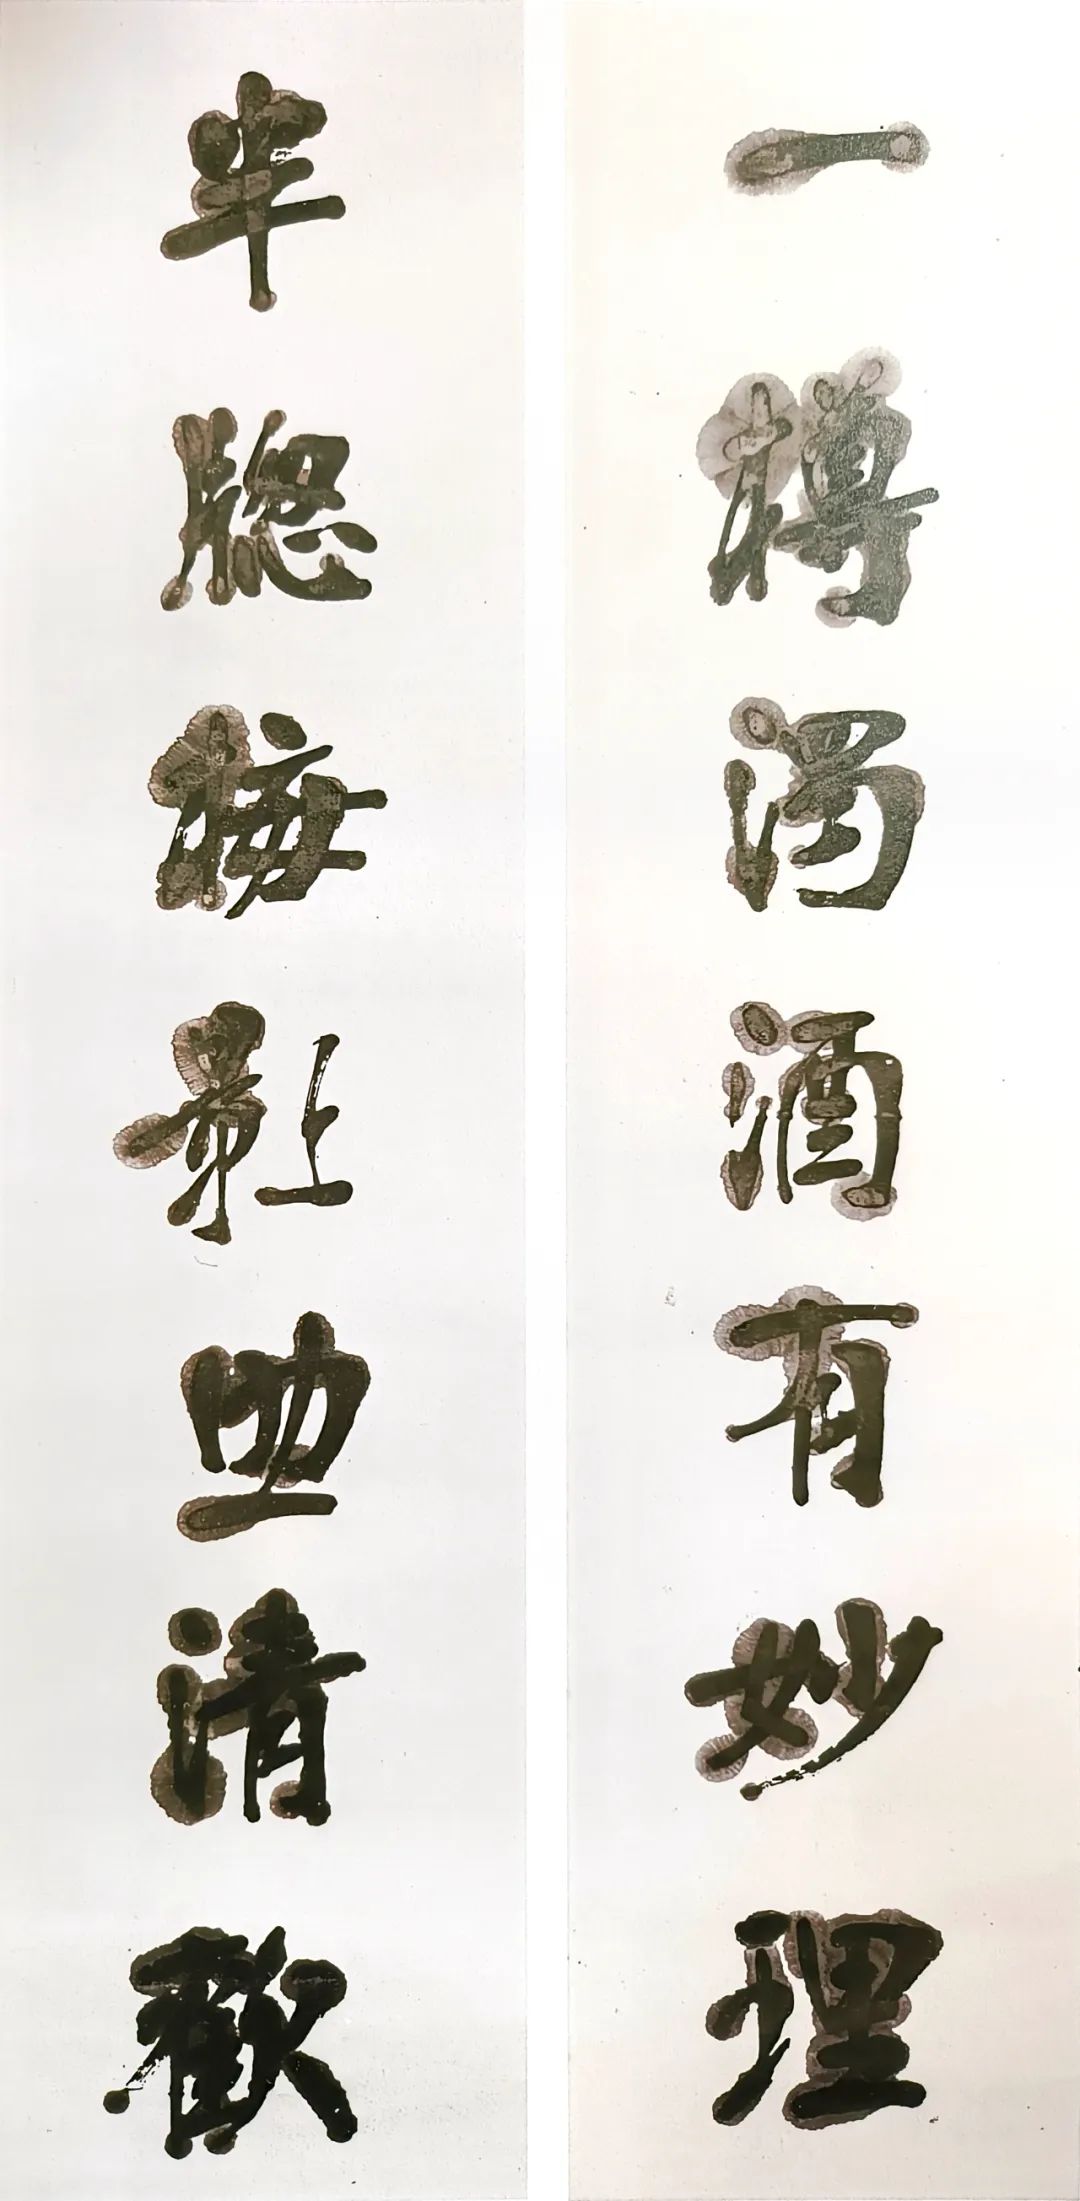 一樽濁酒有妙理
半牎梅影助清歡